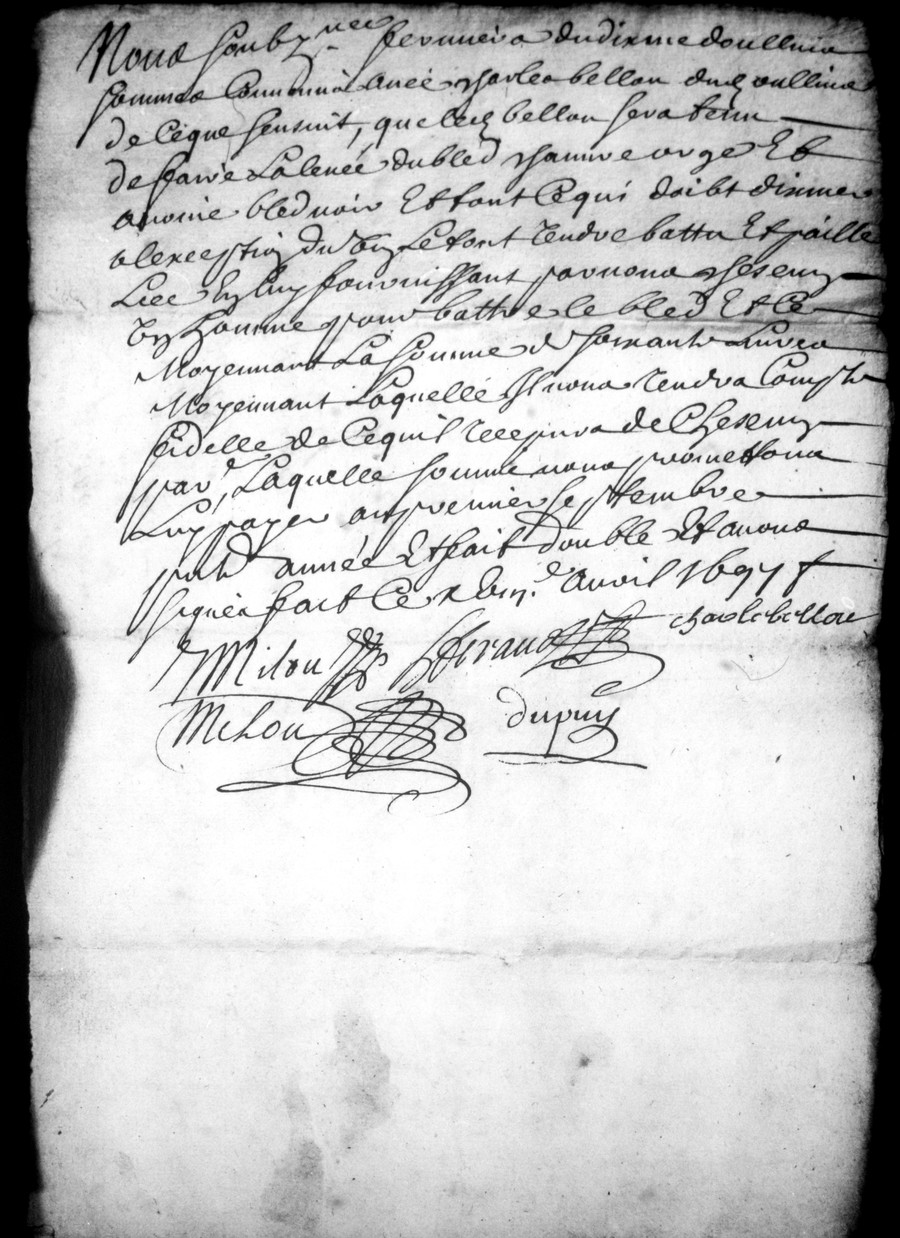 Nous soubz.nes fermiers du dixme doullins
sommes Convenus avec charles bellon dud oullins
de Ceque sensuit, que led bellon sera tenu
de faire La levée du bled chanvre orge Et
avoine bled noir Et tout Cequi doibt dixme
a lexception du vin Le tout rendre battu Et paille
Liee En luy fournissant par nous
un homme pour battre le bled Et Ce
Moyennant La somme de soixante Livres
Moyennant Laquelle Il nous rendra Compte
fidelle de Cequil recepvra de
par, Laquelle somme nous promettons
Luy payer au premier septembre
année Et fait double Et avons
signés fait Ce avril 1697
charle bellon
Milou
Milou dupuy